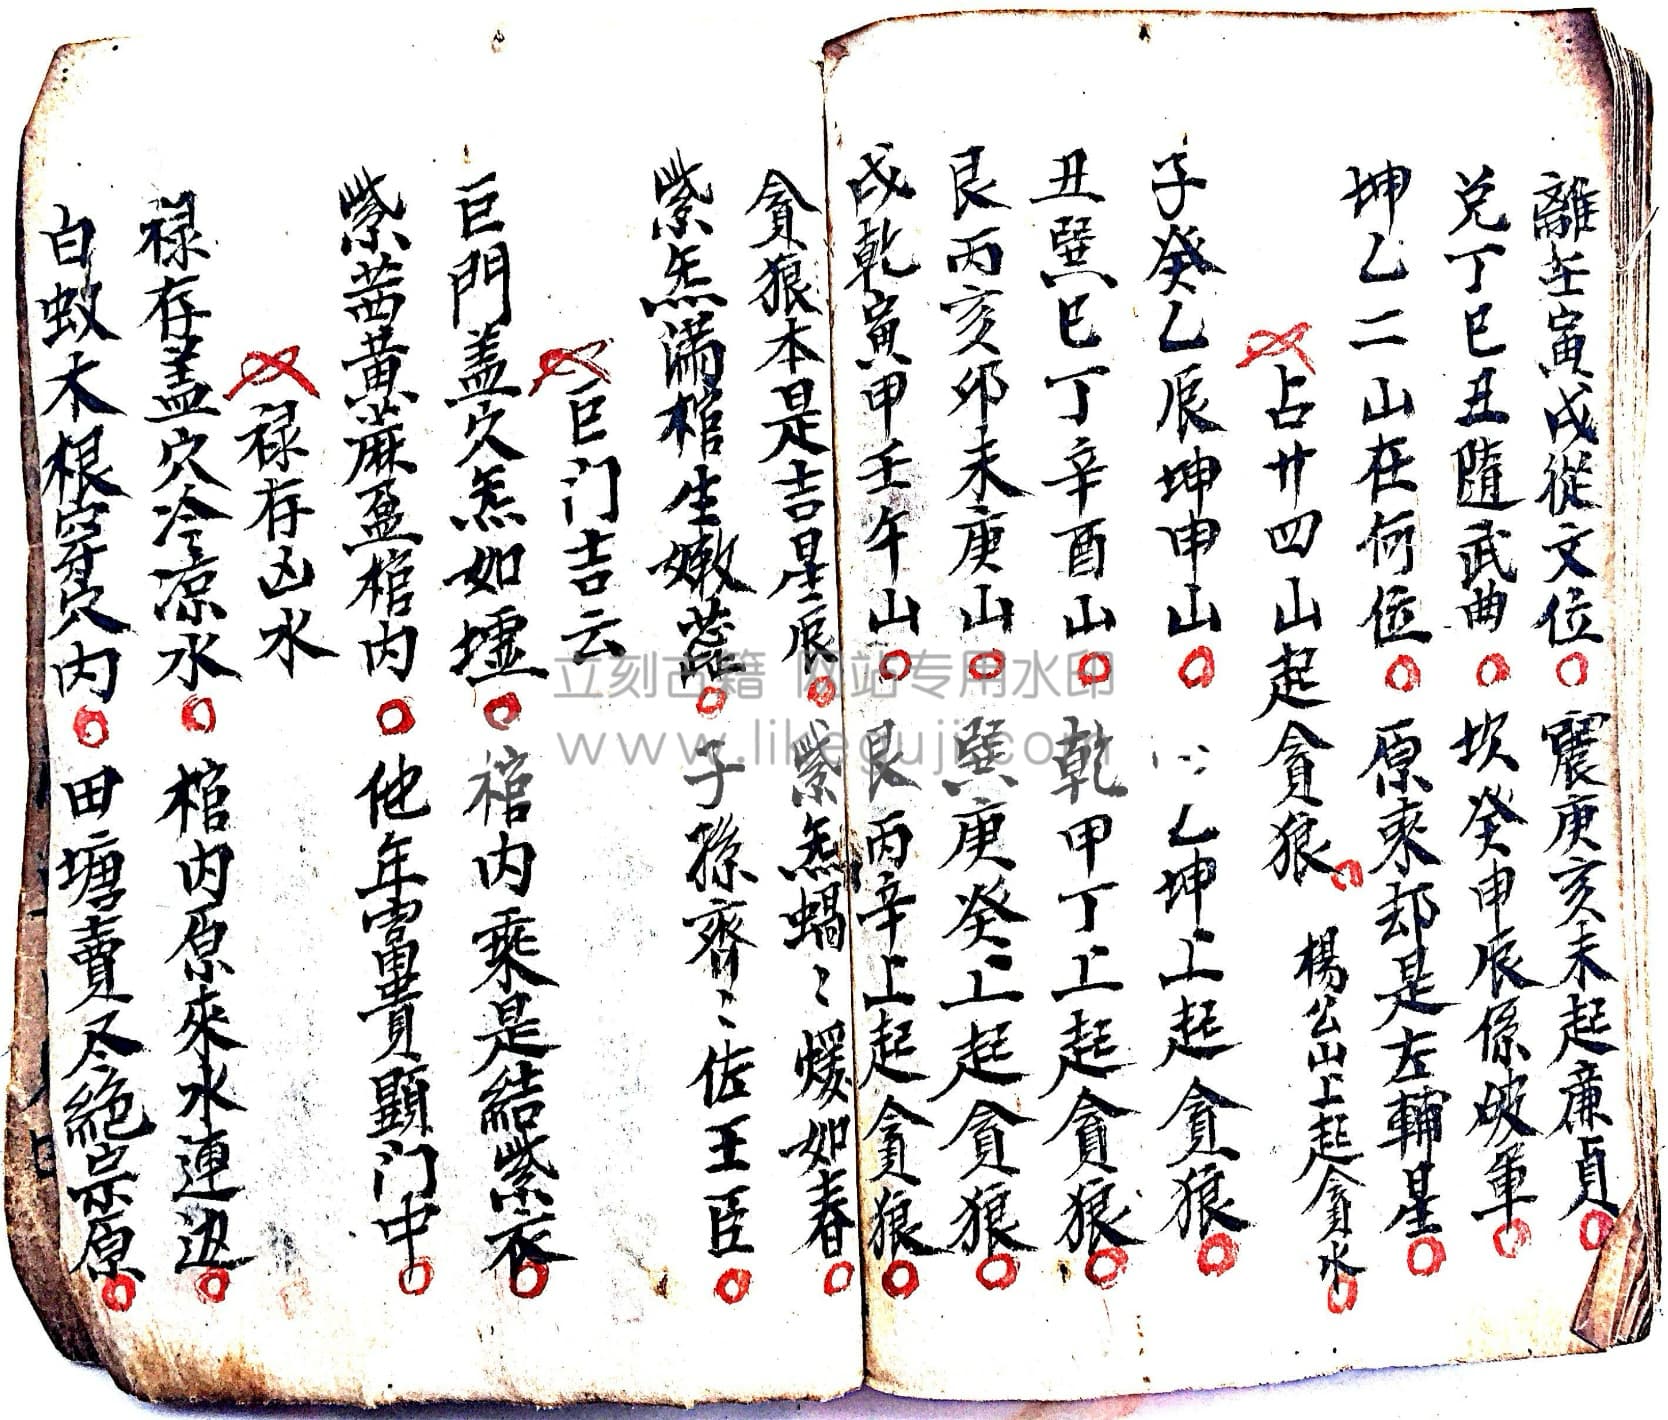 離壬寅戌從文位 震庚亥未起廉貞
兑丁巳丑隨武曲 坎癸申辰係破軍
坤乙二山在何位 原來却是左輔星
占廿四山起貪狼 楊公山上起貪水
子癸乙辰坤申山 乙坤上起貪狼
丑巽巳丁辛酉山 乾甲丁上起貪狼
艮丙亥卯未庚山 巽庚癸上起貪狼
戌乾寅甲壬午山 艮丙辛上起貪狼
貪狼本是吉星辰 紫炁蝎〻煖如春
紫炁満棺生嫩蕊 子孫齊〻佐王臣
巨门吉云
巨門盖穴炁如墟 棺内乘是結紫衣
紫茜黄蔴盈棺内 他年富貴顕门中
禄存凶水
禄存盖穴冷凉水 棺内原來水連边
白蚁木根穿穴内 田塘賣尽絶宗原
立刻古籍 网站专用水印
www.likeguji.com